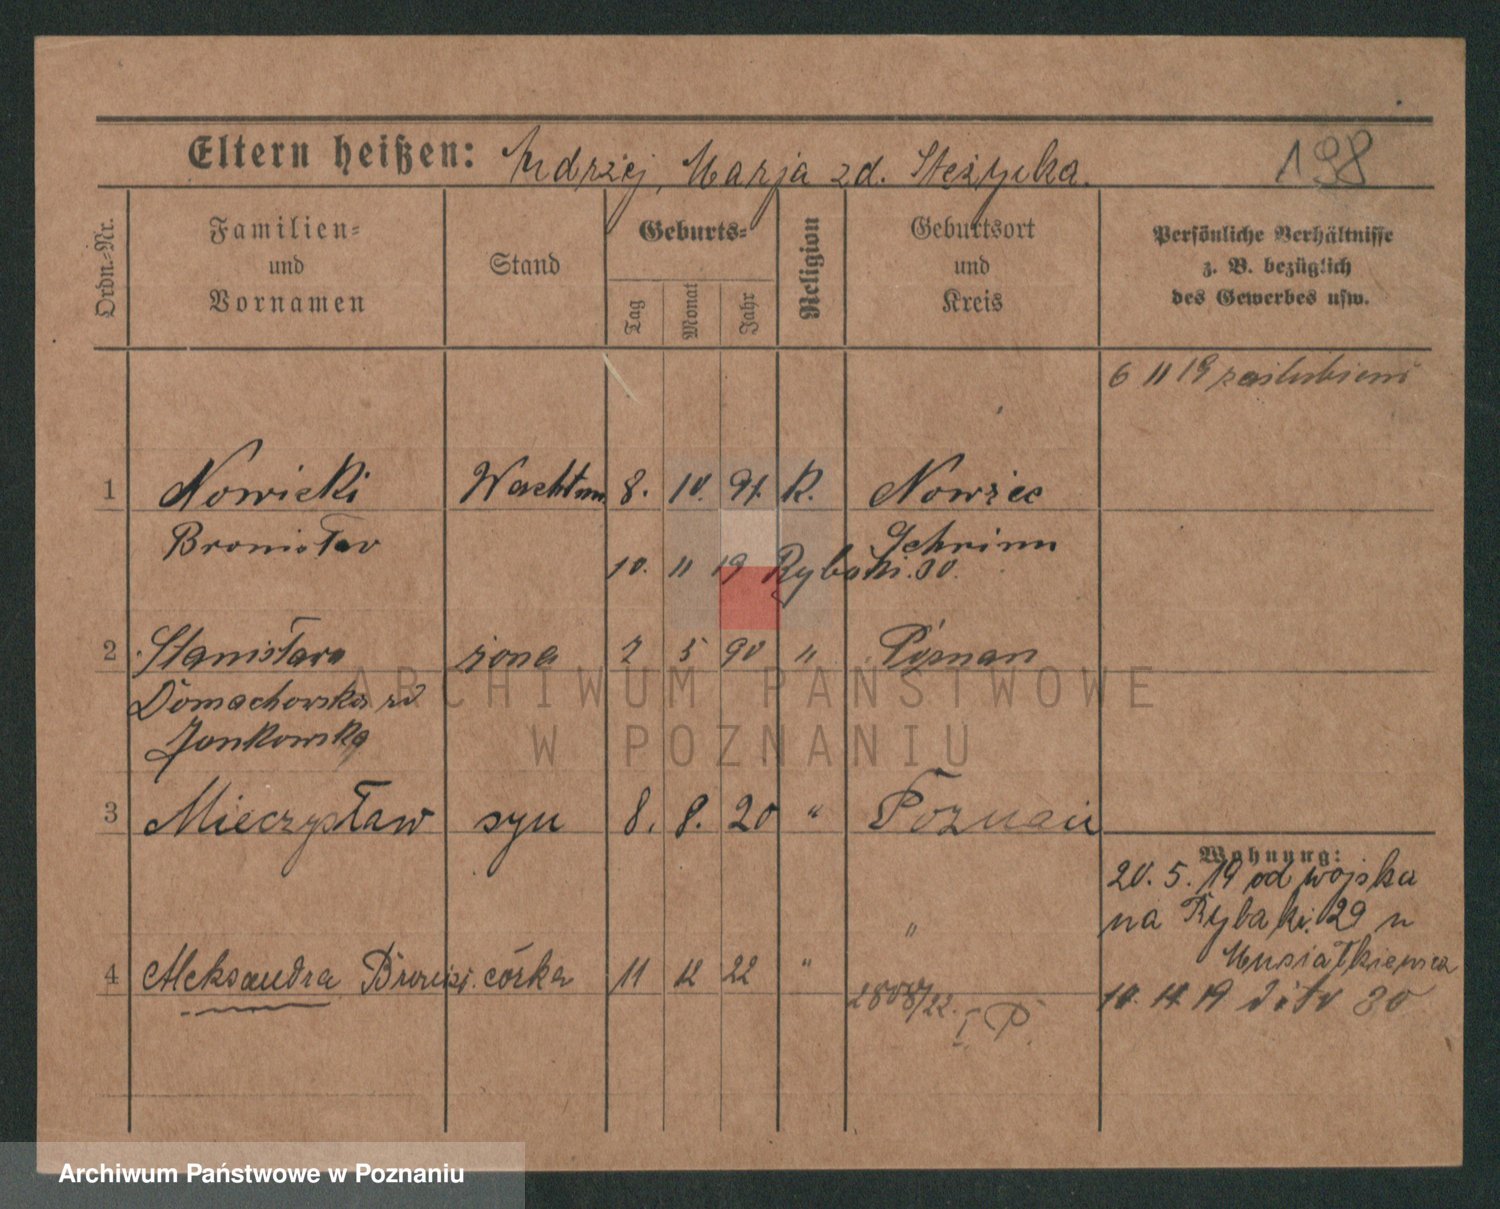 Eltern heißen: Andrzej, Marja zd. Stężycka. 198
Ordn.-Nr.
Familien-
und
Vornamen
Stand
Geburts-
Tag
Monat
Jahr
Religion
Geburtsort
und
Kreis
Persönliche Verhältnisse
z. B. bezüglich
des Gewerbes usw.
6 11 19 zaślubieni
1 Nowicki Wachtm. 8. 10. 91. K. Nowiec
Bronisław Schrimm
10. 11 19 Rybaki. 30.
2 Stanisława żona 7 5 90 " Poznan
Domachowska zd
Jankowska
3 Mieczysław syn 8. 8. 20 " Poznań
Wohnung:
20. 5. 19 od wojska
na Rybaki. 29 u
Musiałkiewicza
4 Aleksandra córka 11 12 22 " "
2808/22. I P.
10. 11. 19 dito 30
ARCHIWUM PAŃSTWOWE
W POZNANIU
Archiwum Państwowe w Poznaniu